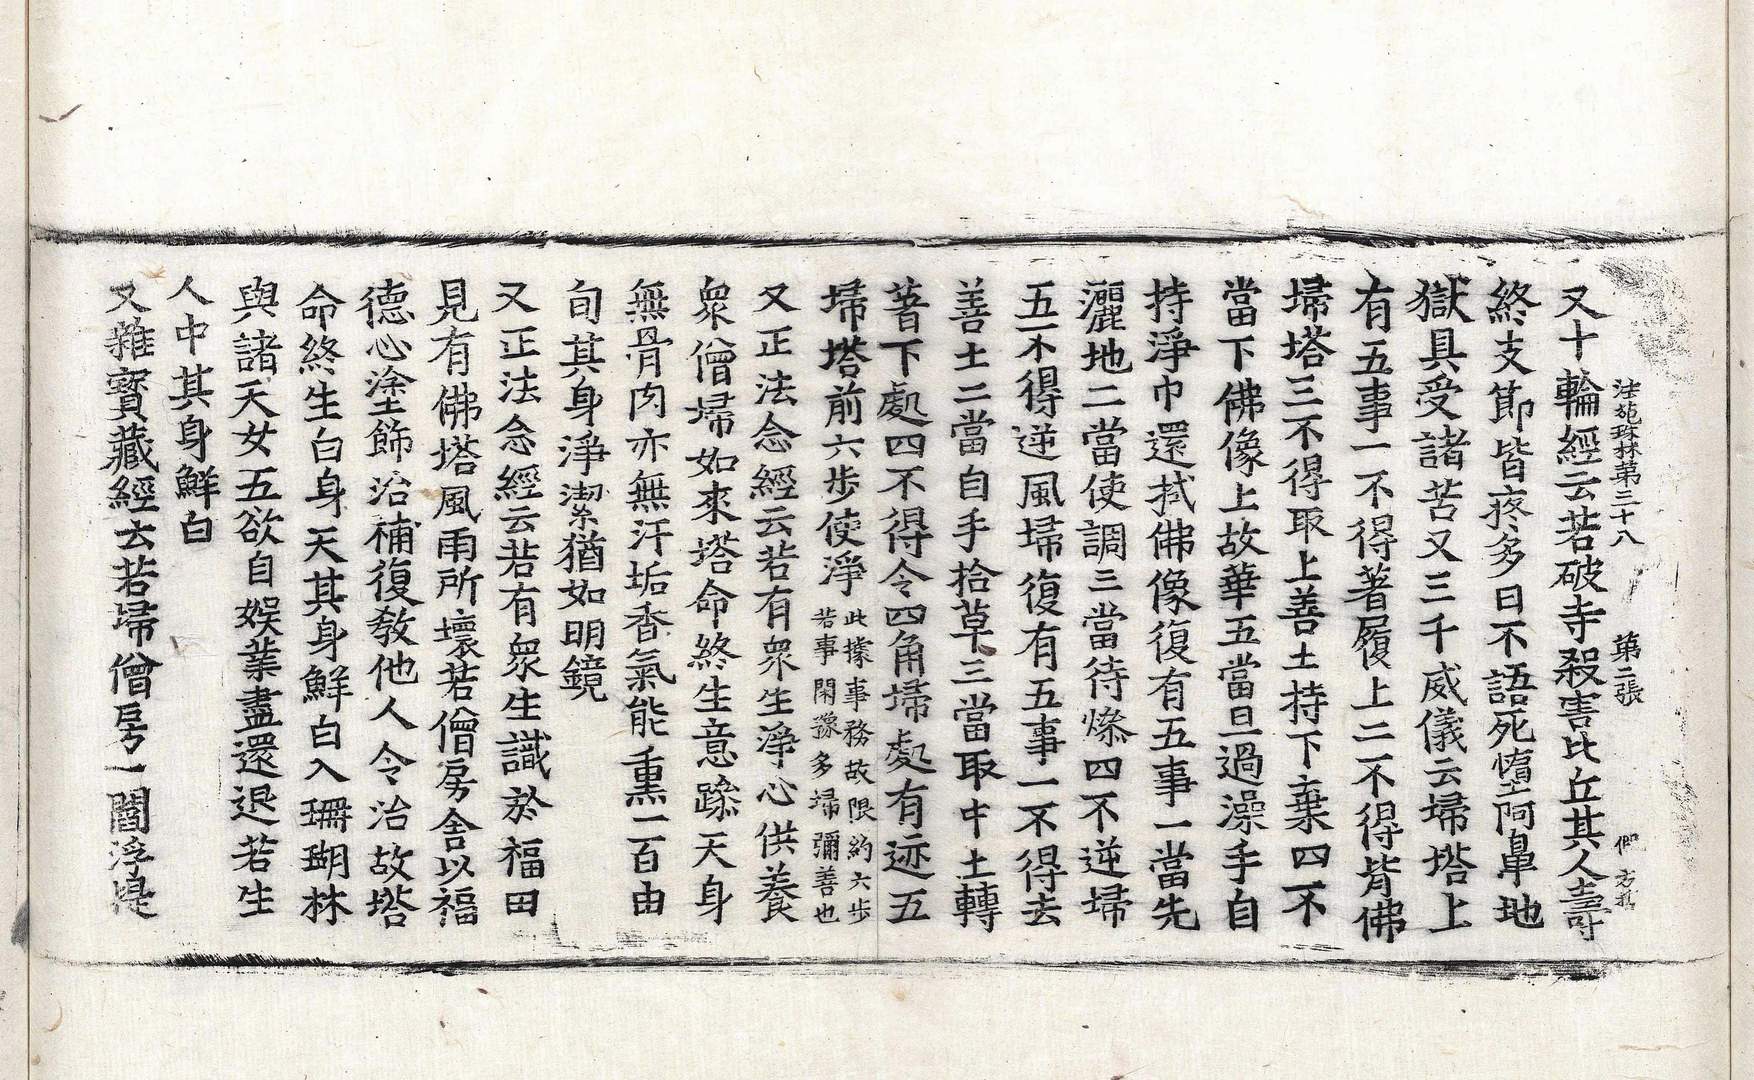 法苑珠林第三十八 第二張
又十輪經云若破寺殺害比丘其人壽
終支節皆疼多日不語死墮阿鼻地
獄具受諸苦又三千威儀云掃塔上
有五事一不得著履上二不得背佛
掃塔三不得取上善土持下棄四不
當下佛像上故華五當旦過澡手自
持淨巾還拭佛像復有五事一當先
灑地二當使調三當待燥四不逆掃
五不得逆風掃復有五事一不得去
善土二當自手拾草三當取中土轉
著下處四不得令四角掃處有迹五
掃塔前六步使淨此據事務故限約六步
若事閑豫多掃彌善也
又正法念經云若有眾生淨心供養
眾僧掃如來塔命終生意躁天身
無骨肉亦無汗垢香氣能熏一百由
旬其身淨潔猶如明鏡
又正法念經云若有眾生識於福田
見有佛塔風雨所壞若僧房舍以福
德心塗飾治補復教他人令治故塔
命終生白身天其身鮮白入珊瑚林
與諸天女五欲自娛業盡還退若生
人中其身鮮白
又雜寶藏經云若掃僧房一閻浮提